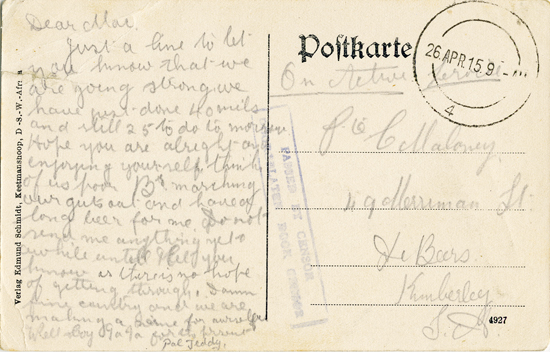 Dear Mac.
Just a line to let
you know that we
are going strong we
have just done 40 mils
and still 25 to do to morrow
Hope you are alright an
enjoying yourself think
of us poor B's marching
our guts out and have a
long beer for me. Do not
send me anything yet
awhile untill I tell you
know as there is no hope
of getting through. Damn
fine country and we are
making a name for ourselves
Well Boy Ta Ta for the present
Pal Teddy.
Verlag Edmund Schmidt, Keetmanshoop, D.-S.-W.-Afrika
Postkarte
On Active Service
26.APR.15.9
4
PASSED BY CENSOR
Pte C Maloney
49 Merriman St
De Beers
Kimberley
S.A.
4927